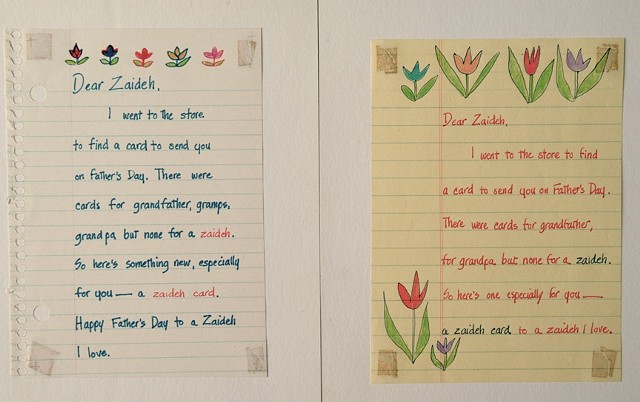 Dear Zaideh,
I went to the store
to find a card to send you
on Father's Day. There were
cards for grandfather, gramps,
grandpa but none for a zaideh.
So here's something new, especially
for you — a zaideh card.
Happy Father's Day to a Zaideh
I love.
Dear Zaideh,
I went to the store to find
a card to send you on Father's Day.
There were cards for grandfather,
for grandpa but none for a zaideh.
So here's one especially for you —
a zaideh card to a zaideh I love.